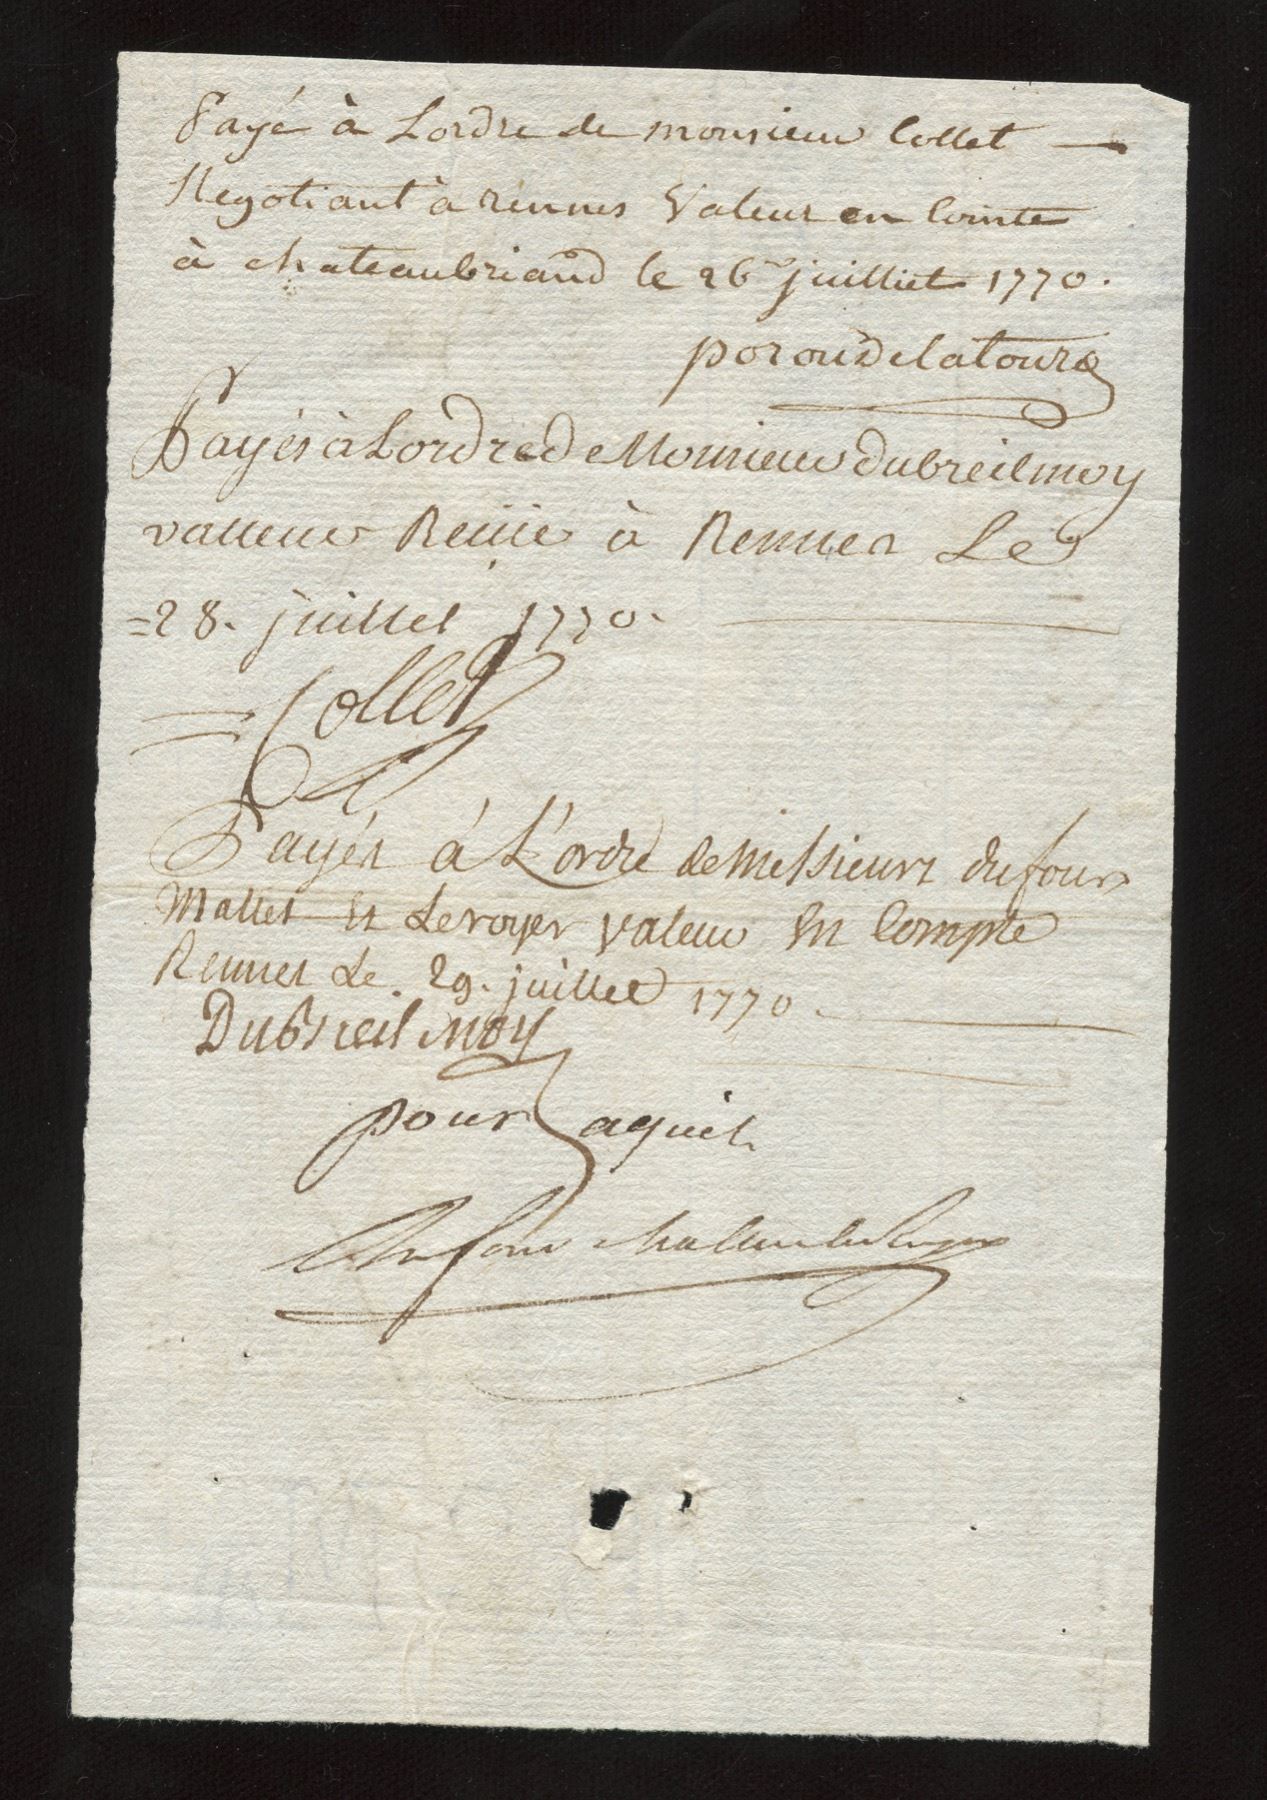 Payé à Lordre de monsieur Collet
Negotiant à rennes Valeur en Comte
à chateaubriand le 26 juilliet 1770.
poroudelatour
Payés à Lordre de Monsieur dubreilmoy
valleur Reüüe à Rennes Le
=28. juillet 1770.
Collet
Payés á L'ordre de Messieurs dufour
Mallet Et Leroyer valeur En Compte
Rennes Le. 29. juillet 1770.
Dubreil moy
pour aquit
Dufour Mallet Le Royer